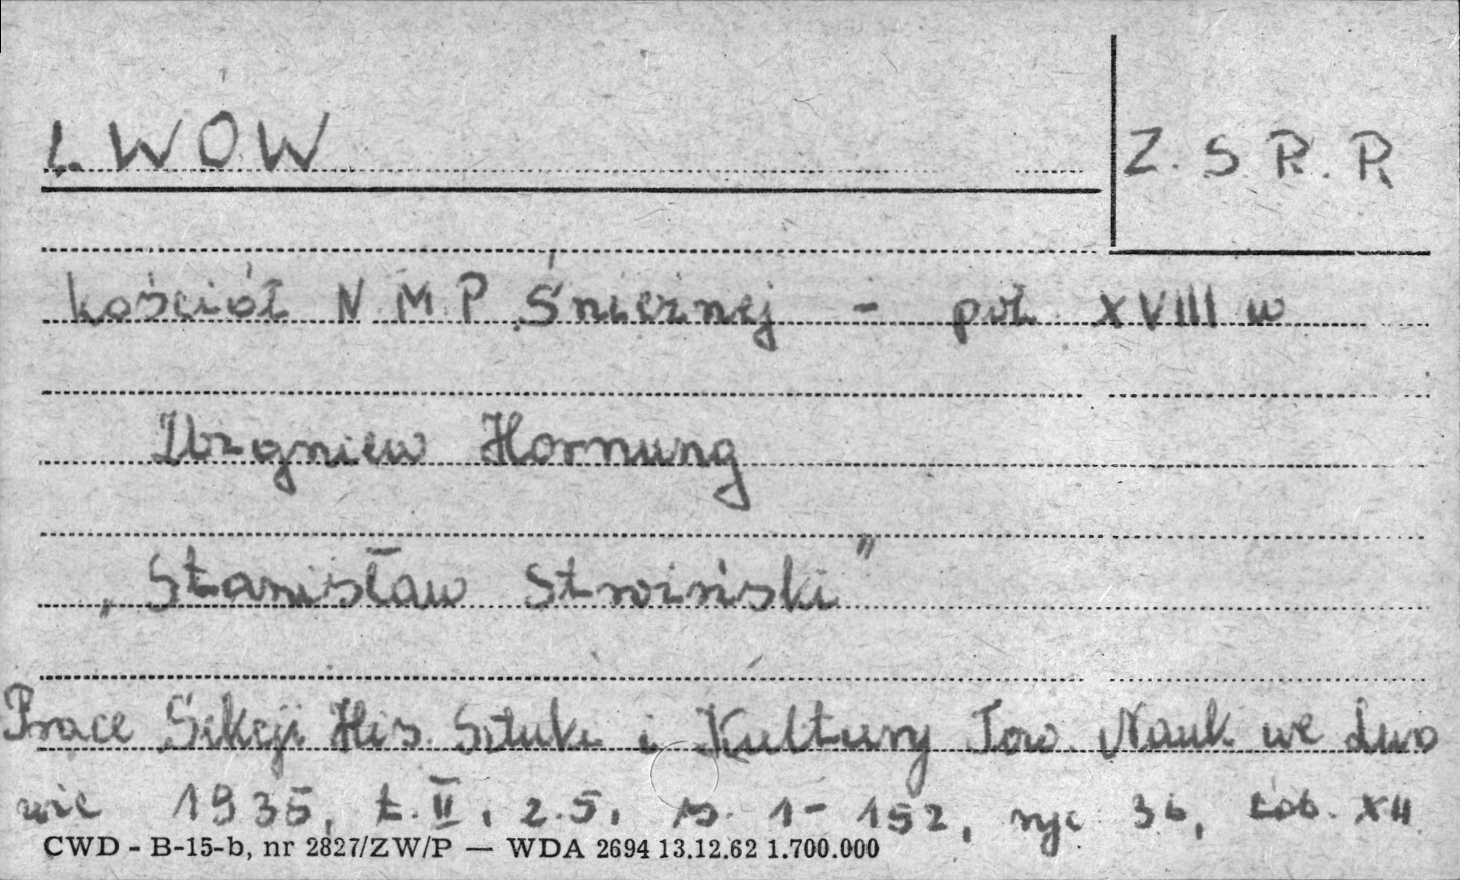 LWOW
Z.S.R.R
Kościół N.M.P. Śnieżnej - poł XVIII w
Zbigniew Hornung
„Stanisław Stroiński"
Prace Sekcji His. Sztuki i Kultury Tow. Nauk we Lwo
wie 1935, t. II, z. 5, s. 1-152, ryc 36, tab. XII
CWD - B-15-b, nr 2827/ZW/P — WDA 2694 13.12.62 1.700.000